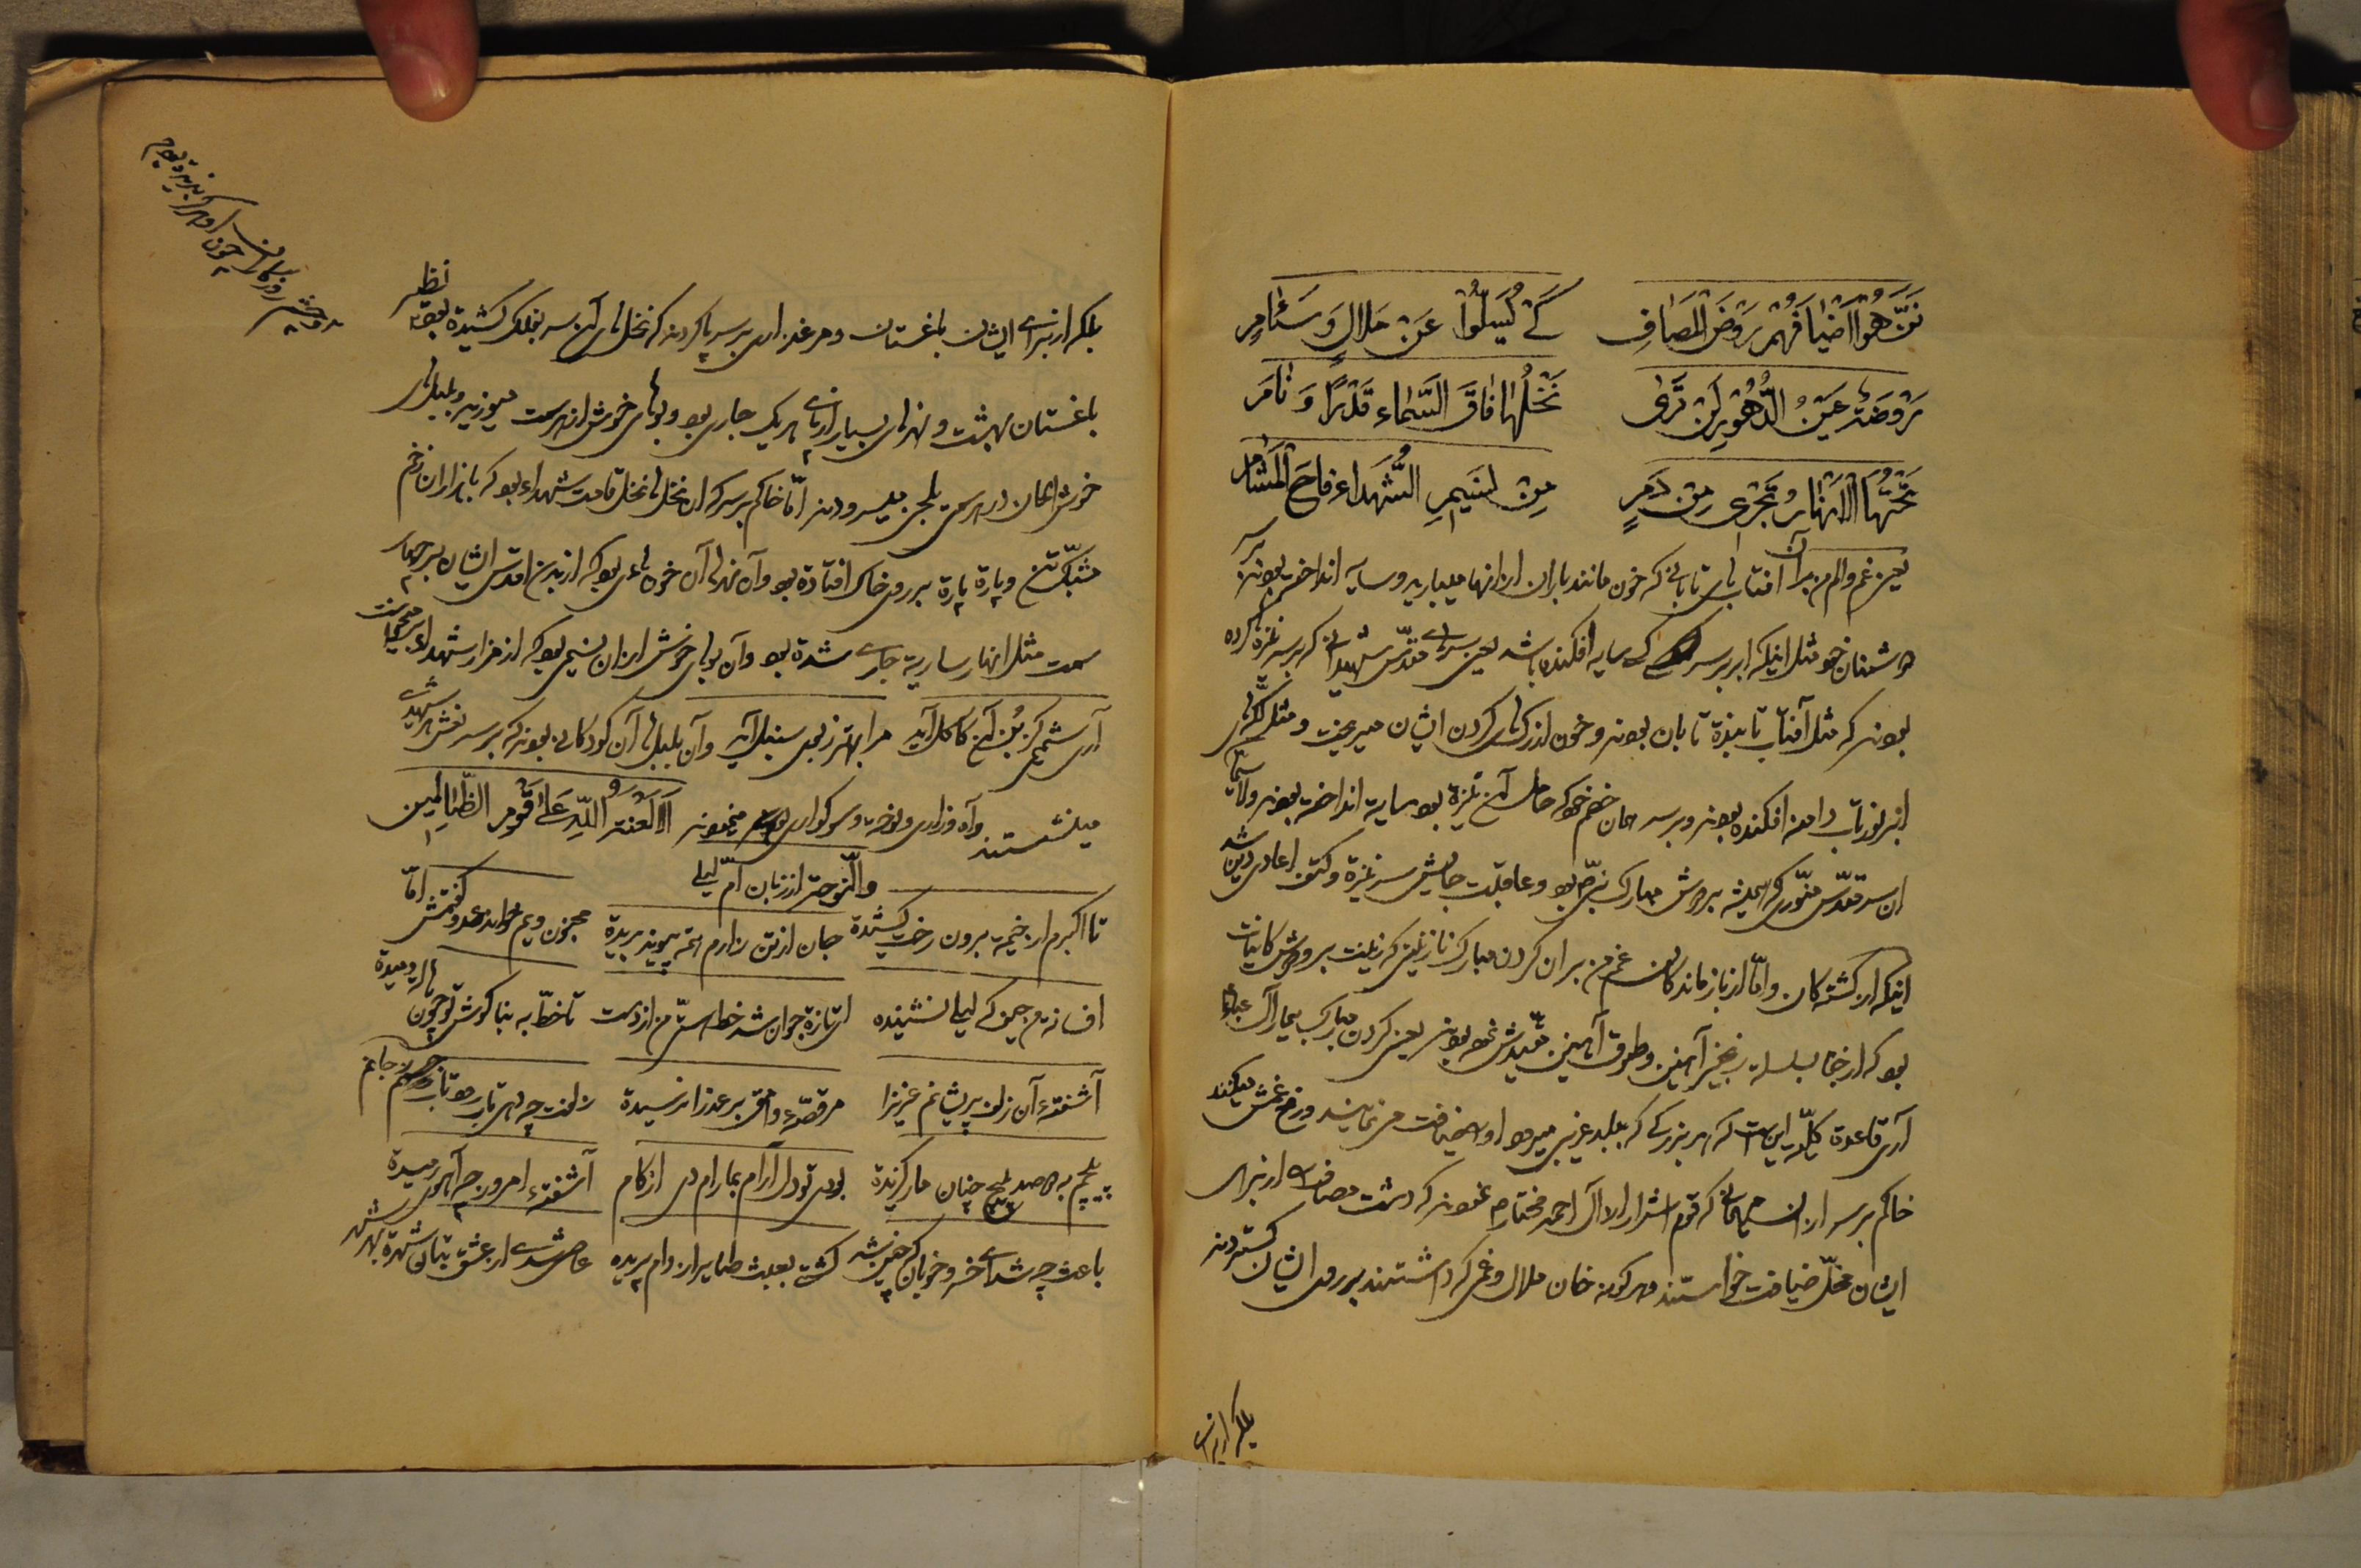 نَزَّهُوا اَضْیَافَهُمْ رَوْضَ الْمَصَافِ کَیْ یُسَلُّوا عَنْ مَلَالٍ وَ سَئَامِ
رَوْضَةٌ عَیْنُ الدُّهُورِ لَنْ تَرٰی نَخْلُهَا فَاقَ السَّمَاءَ قَدْرًا وَ
تَحْتَهَا الْاَنْهَارُ تَجْرِی مِنْ دَمٍ مِنْ نَسِیمِ الشُّهَدَاءِ فَاحَ الْمَشَامِ
یعنی غم و الم من بر آن آفتاب‌های تابانی که خون مانند باران از آنها میبارید و سایه انداخته بودند بر سر
دشمنان خود مثل اینکه ابر بر سر کسی سایه افکنده باشد یعنی سرهای مقدّس شهیدانی که بر سر نیزه کرده
بودند که مثل آفتاب تابنده تابان بودند و خون از رگهای گردن ایشان میریخت و مثل
ابر نور تاب دامنه افکنده بودند و بر سر همان خصم خود که حامل آن نیزه بود سایه انداخته بودند ولاسیّما
آن سر مقدّس منوّری که همیشه بر دوش مبارک نبیّ بود و عاقبت جایش سر نیزه و کتف اعادی دین شد
اینکه از کشتگان و امّا از بازماندگان غم من بر آن گردن مبارک نازنینی که زینت بر دوش کاینات
بود که از جفا بسلسله زنجیر آهنین و طوق آهنین مقیّدش نموده بودند یعنی گردن مبارک بیمار آل عبا
آری قاعده کلّیه این است که هر بزرگی که ببلد غریبی میرود او را ضیافت مینمایند و رفع غمش میکنند
خاکم بر سر از آن مهمانی که قوم اشرار از آل احمد مختار نمودند که دشت مصاف از برای
ایشان محلّ ضیافت خواستند و هر گونه خوان ملال و غمی که داشتند بر روی ایشان گستردند
بلکه از برای
بلکه از برای ایشان باغستان و مرغزاری بر سر پا کردند که نخل‌های آن سر بفلک کشیده بود نظیر
باغستان بهشت و نهرهای بسیار از پای هر یک جاری بود و بوهای خوش از هر سمت میوزید و بلبلهای
خوش الحان در هر سمت بلحن میسرودند امّا خاکم بر سر که آن نخل‌ها نخل قامت شهداء بود که با هزاران زخم
مشبّک تن و پاره پاره بر روی خاک افتاده بود و آن نهرها آن خون‌هایی بود که از بدن اقدس ایشان بر چهار
سمت مثل انهار ساریه جاری شده بود و آن بوهای خوش از آن نسیمی بود که از مزار شهداء
آری شمیمی کز بُن آن کاکل آید مرا بهتر ز بوی سنبل آید و آن بلبلها آن کودکانی بودند که بر سر نعش هر شهیدی
مینشستند و آه و زاری و نوحه و سوگواری مینمودند اَلَا لَعْنَةُ اللّٰهِ عَلَی قَوْمِ الظَّالِمِین
والنّوحه از زبان امّ لیلی
تا اکبرم از خیمه برون رخت کشیده جان از تن زارم همه پیوند بریده مجنون ویم خواند عدو گفتمش امّا
افسانه مجنون که لیلی نشنیده ای تازه جوان شد خط از دست تا خطّ به بناگوش تو چون هاله دمیده
آشفته آن زلف پریشانم عزیزا قصّه وامق بر عذرا نرسیده زلفت چه دهی تاب رود تاب ز جانم
پیچم به چنان مار گزیده بودی تو دل آرام بما رام دل از کام آشفته امروز چه آهوی رمیده
باعث چه شدای خسرو خوبان که کشتی بعبث طایر از دام پریده عاصی شده از عشق بتان شهره بهر شهر